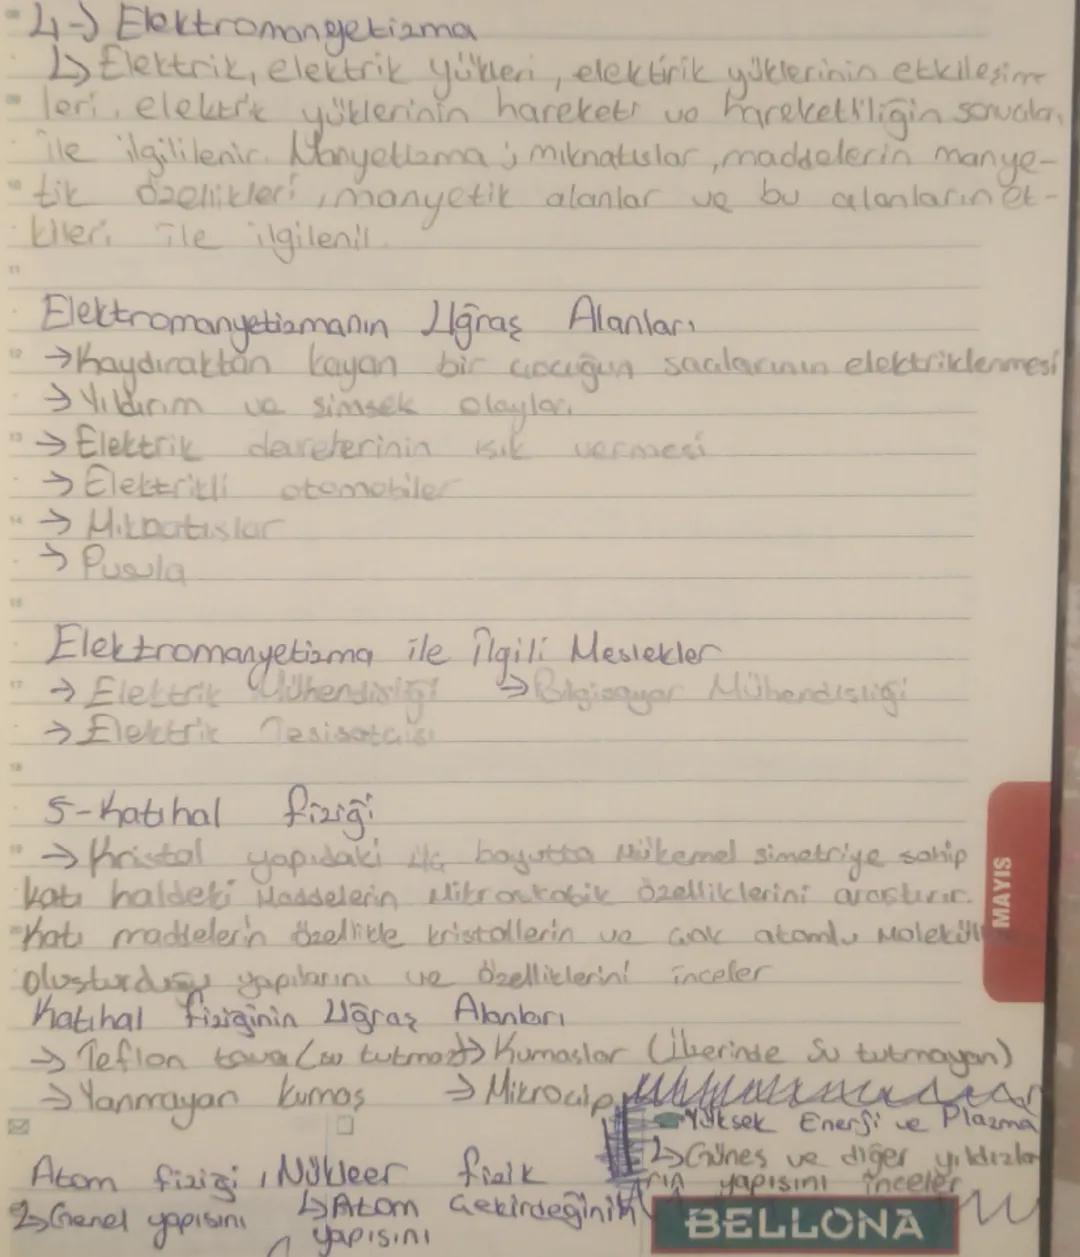 4-) Elektromangetizma
↳ Elektrik, elektrik yükleri, elektirik yüklerinin etkileşim
leri, elektrik yüklerinin hareketi ve hareketliliğin sonuçları
ile ilgililenir. Manyetizma; mıknatıslar, maddelerin manye-
tik özellikleri, manyetik alanlar ve bu alanların et-
kileri ile ilgilenil
11
Elektromanyetizmanın Uğraş Alanları
12 → Kaydıraktan kayan bir çocuğun saçlarının elektriklenmesi
→ Yıldırım ve şimşek olayları
13 → Elektrik devrelerinin ışık vermesi
→ Elektrikli otomobiler
14 → Mıknatıslar
→ Pusula
15
Elektromanyetizma ile ilgili Meslekler
17 → Elektrik Mühendisliği → Bilgisayar Mühendisliği
→ Elektrik Tesisatçısı
18
5-Katıhal fiziği
19 → Kristal yapıdaki üç boyutta mükemel simetriye sahip
katı haldeki maddelerin mikroskobik özelliklerini araştırır.
Katı maddelerin özellikle kristallerin ve çok atomlu molekül
oluşturduğu yapılarını ve özelliklerini inceler
MAYIS
Katıhal fiziğinin Uğraş Alanları
→ Teflon tava (su tutmaz) → Kumaşlar (Üzerinde su tutmayan)
→ Yanmayan kumaş → Mikroçip
Yüksek Enerji ve Plazma
↳ Güneş ve diğer yıldızla
rın yapısını inceler
Atom fiziği, Nükleer fizik
↳ Genel yapısını ↳ Atom çekirdeğinin
yapısını
BELLONA